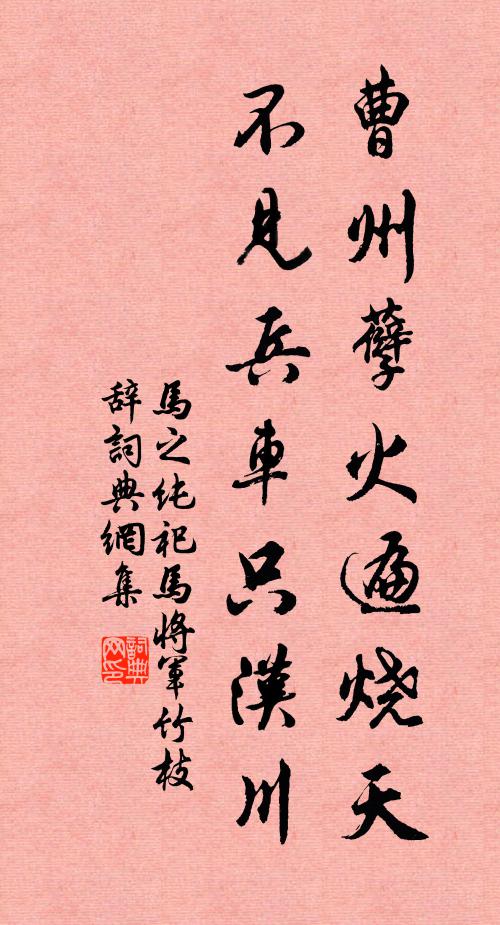 曹州孽火遍燒天
不見兵車只漢川
馬之純祀馬將軍竹枝
辭詞典網集
詞典
網印